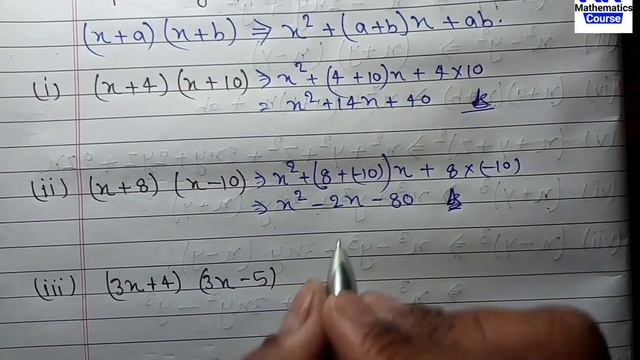 Mathematics
Course
(x+a) (x+b) ⇒ x² + (a+b)x + ab.
(i) (x+4) (x+10) ⇒ x² + (4+10)x + 4×10
= x² + 14x + 40
(ii) (x+8) (x-10) ⇒ x² + (8+(-10))x + 8×(-10)
⇒ x² - 2x - 80
(iii) (3x+4) (3x-5)